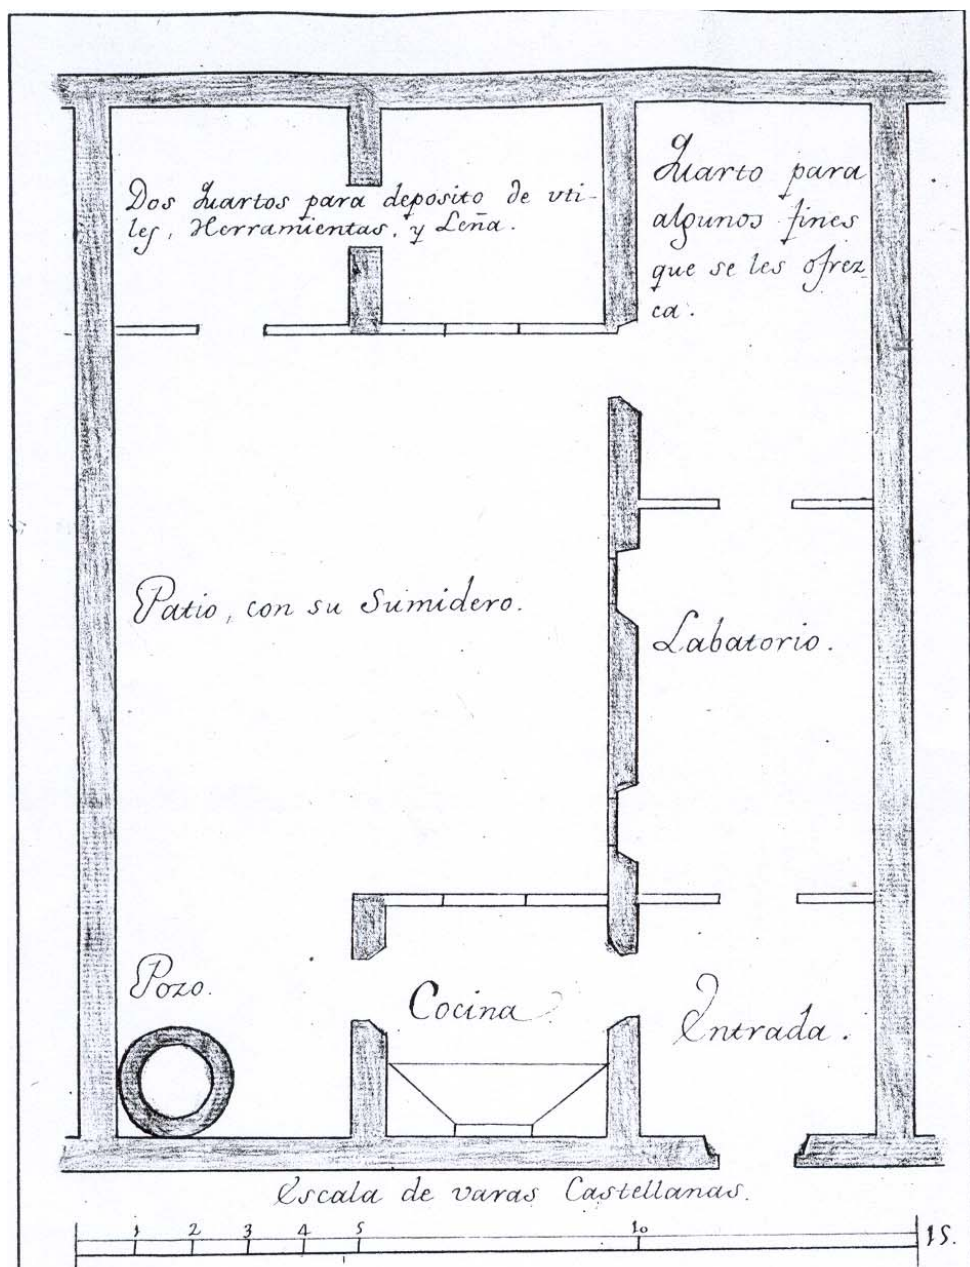 Dos Quartos para deposito de vti-
les, Herramientas, y Leña.
Quarto para
algunos fines
que se les ofrez-
ca.
Patio, con su Sumidero.
Labatorio.
Pozo.
Cocina
Entrada.
Escala de varas Castellanas.
1 2 3 4 5 10 15.